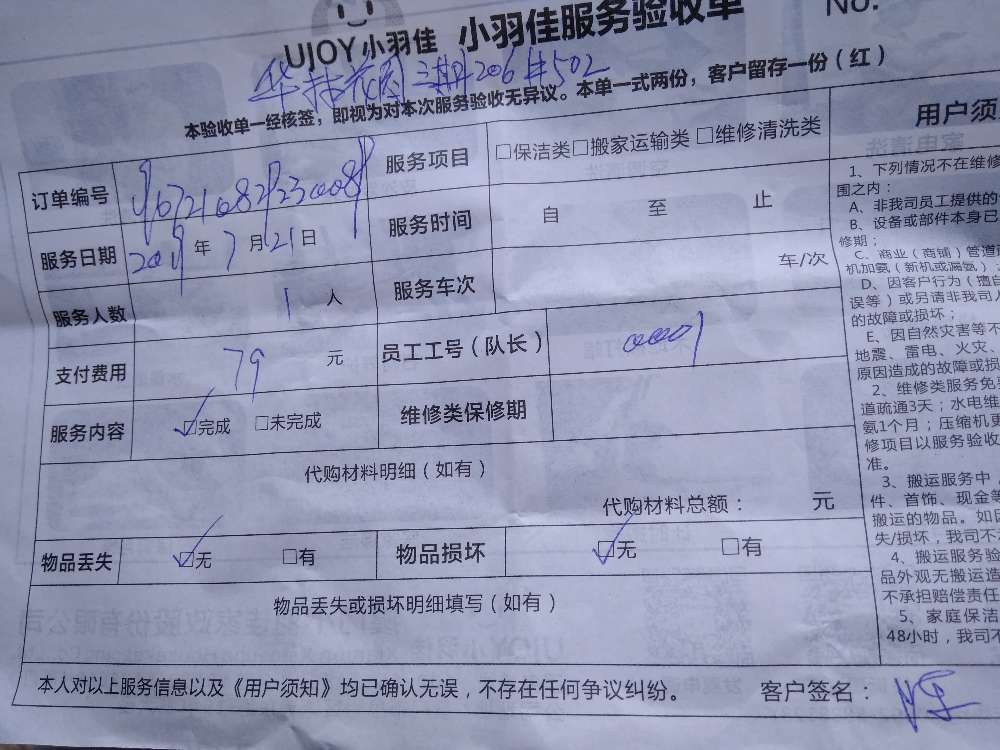 UJOY小羽佳 小羽佳服务验收单 No.
三期206#502
本验收单一经核签，即视为对本次服务验收无异议。本单一式两份，客户留存一份（红）
订单编号 服务项目 □保洁类□搬家运输类□维修清洗类
服务日期 2019年7月21日 服务时间 自 至 止
服务人数 1 人 服务车次 车/次
支付费用 79 元 员工工号（队长） 0001
服务内容 ☑完成 □未完成 维修类保修期
代购材料明细（如有）
代购材料总额： 元
物品丢失 ☑无 □有 物品损坏 ☑无 □有
物品丢失或损坏明细填写（如有）
本人对以上服务信息以及《用户须知》均已确认无误，不存在任何争议纠纷。 客户签名：
用户须
1、下列情况不在维修
围之内：
A、非我司员工提供的
B、设备或部件本身已
修期；
C、商业（商铺）管道
机加氨（新机或漏氨）
D、因客户行为（擅自
误等）或另请非我司人
的故障或损坏；
E、因自然灾害等不
地震、雷电、火灾、
原因造成的故障或损
2、维修类服务免
道疏通3天；水电维
氨1个月；压缩机更
修项目以服务验收
准。
3、搬运服务中，
件、首饰、现金等
搬运的物品。如因
失/损坏，我司不
4、搬运服务验
品外观无搬运造
不承担赔偿责任
5、家庭保洁
48小时，我司不